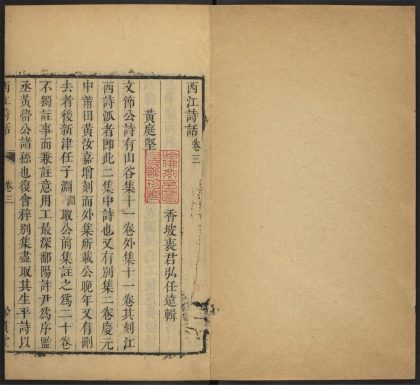 西江詩話卷三
香坡裘君弘任遠輯
黃庭堅
文節公詩有山谷集十一卷外集十一卷其刻江
西詩派者即此二集中詩也又有別集二卷慶元
中莆田黃汝嘉增刻而外集所載公晚年又有刪
去者後新津任子淵淵取公前集註之爲二十卷
不獨註事而兼註意用工最深鄱陽許尹爲序監
丞黃㽦公諸孫也復會稡別集盡取其生平詩以
西江詩話 卷三 妙貫堂